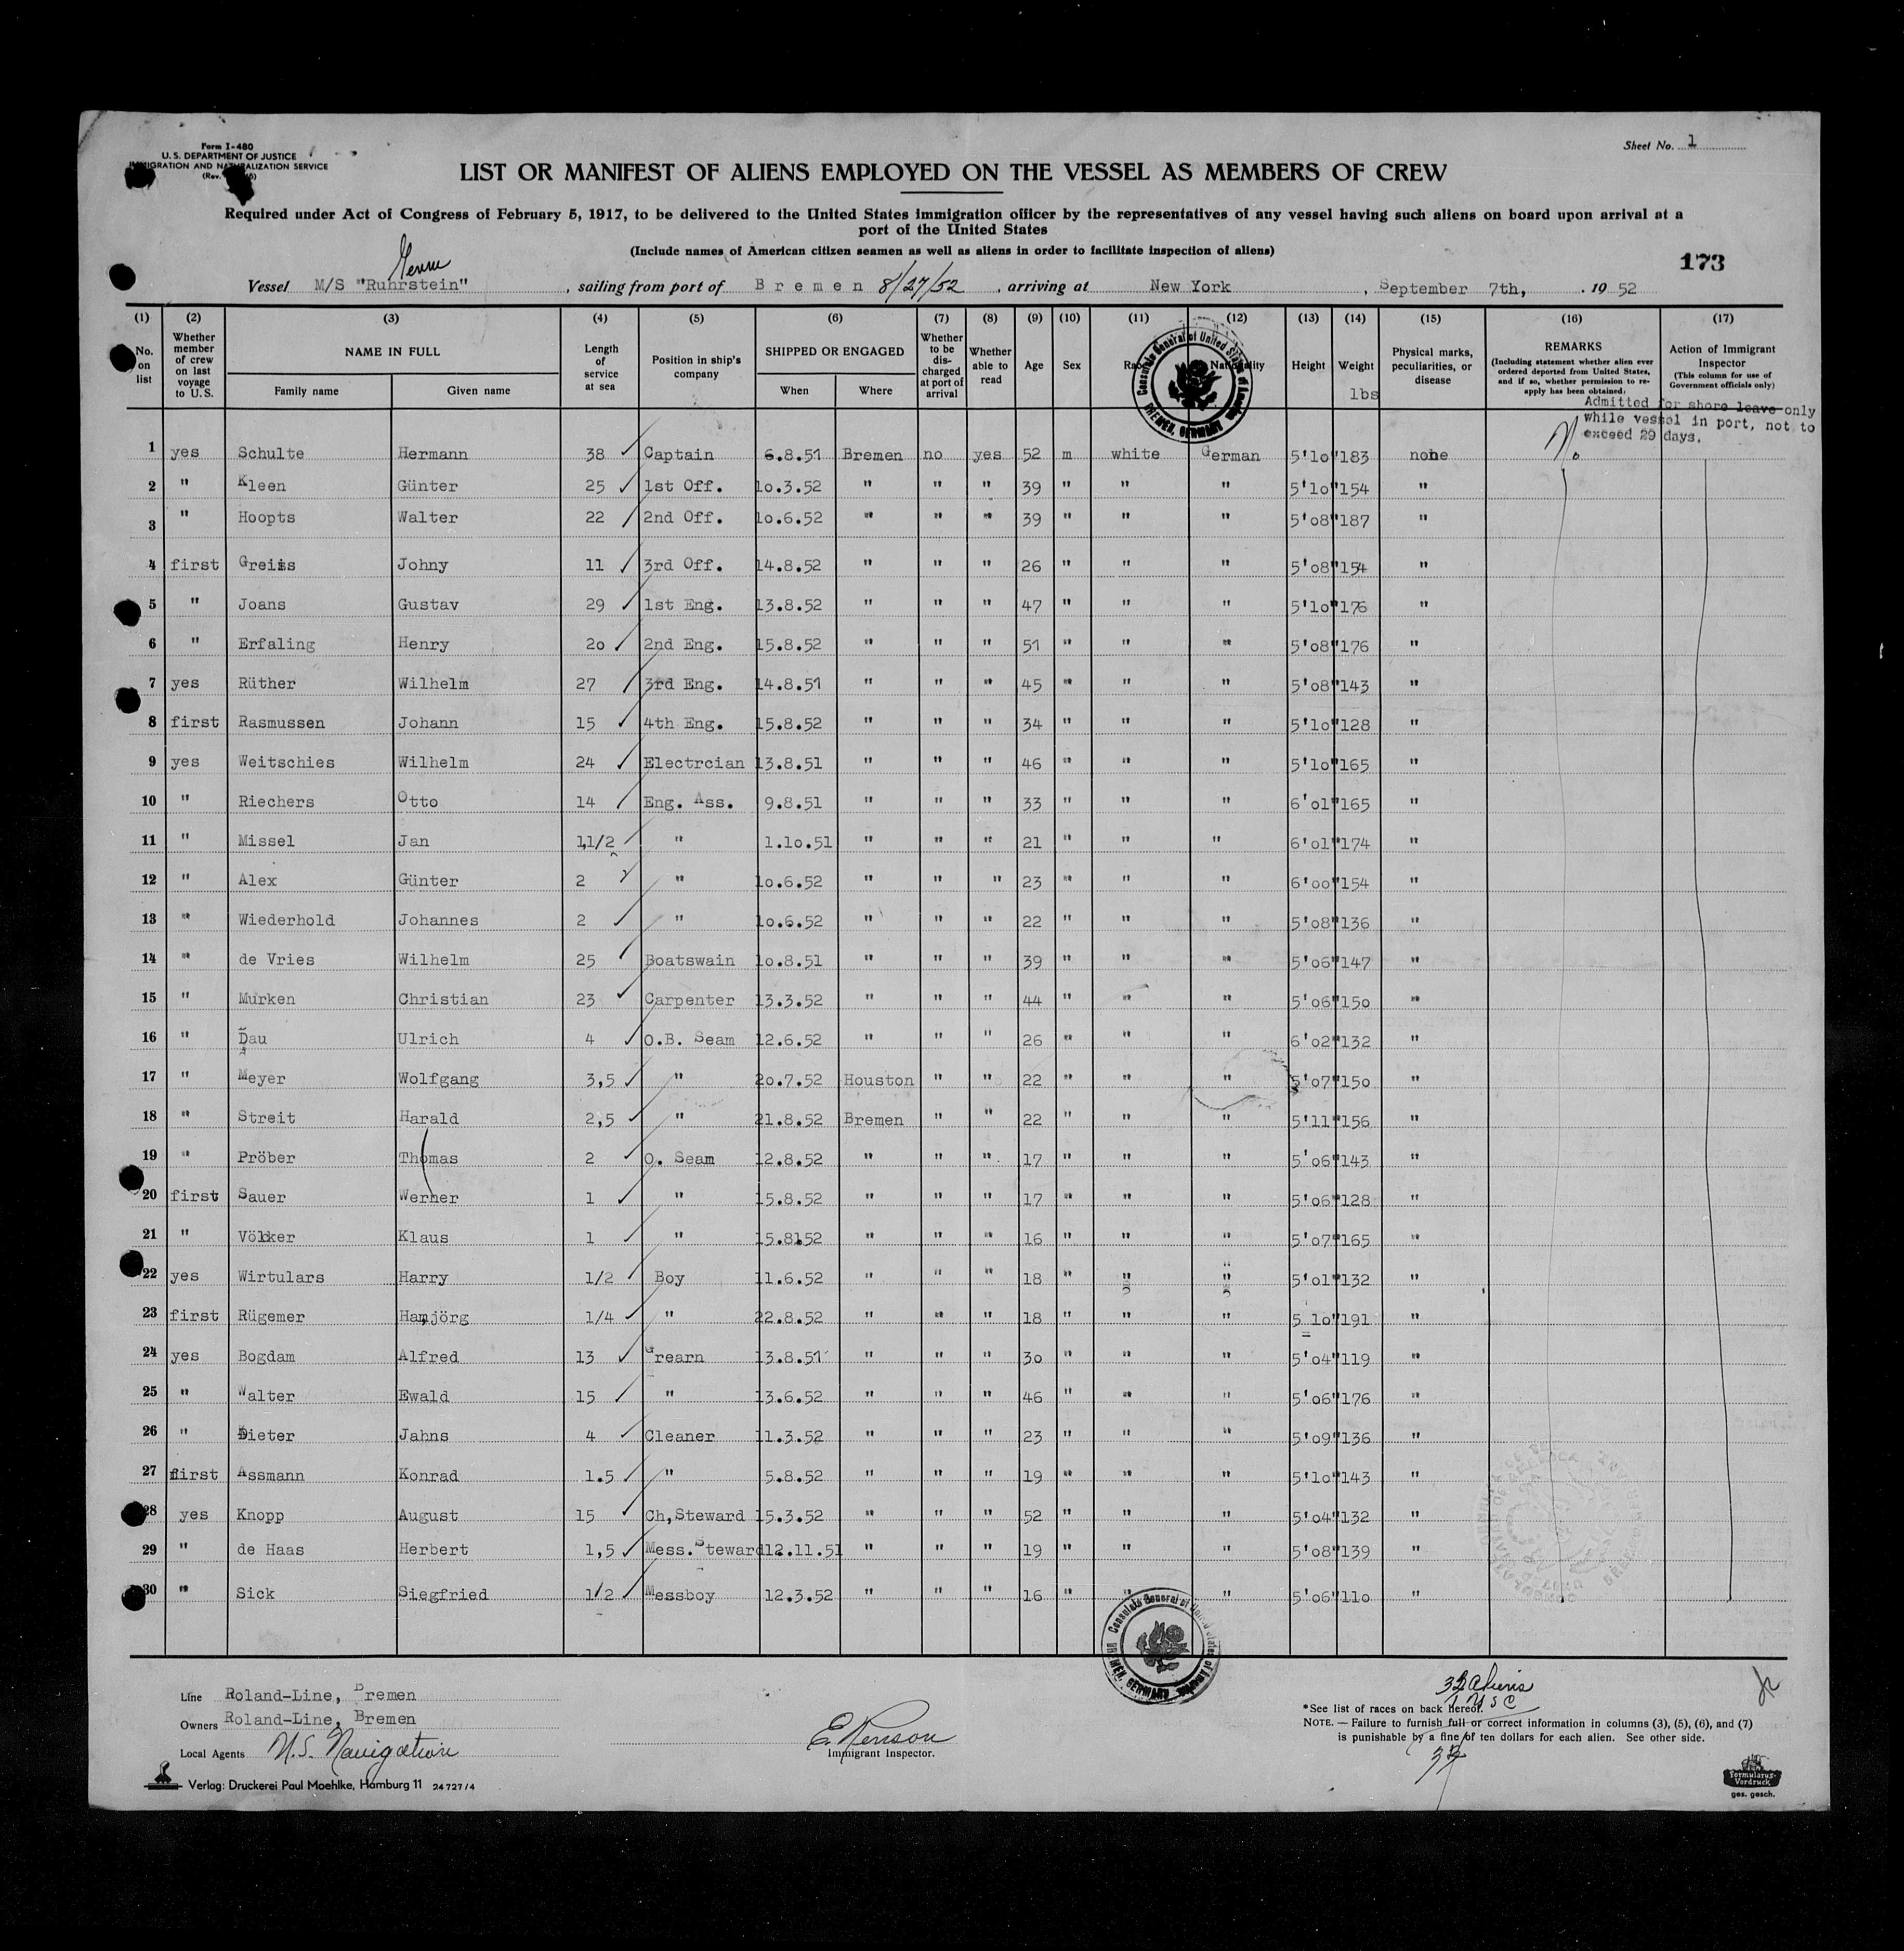 Form I-480
U. S. DEPARTMENT OF JUSTICE
IMMIGRATION AND NATURALIZATION SERVICE
(Rev.
Sheet No. 1
LIST OR MANIFEST OF ALIENS EMPLOYED ON THE VESSEL AS MEMBERS OF CREW
Required under Act of Congress of February 5, 1917, to be delivered to the United States immigration officer by the representatives of any vessel having such aliens on board upon arrival at a
port of the United States
(Include names of American citizen seamen as well as aliens in order to facilitate inspection of aliens)
173
Vessel M/S "Ruhrstein" , sailing from port of Bremen 8/27/52 , arriving at New York , September 7th, . 19 52
(1) (2) (3) (4) (5) (6) (7) (8) (9) (10) (11) (12) (13) (14) (15) (16) (17)
No. on list
Whether member of crew on last voyage to U.S.
NAME IN FULL
Family name Given name
Length of service at sea
Position in ship's company
SHIPPED OR ENGAGED
When Where
Whether to be discharged at port of arrival
Whether able to read
Age
Sex
Race
Nationality
Height
Weight
lbs
Physical marks, peculiarities, or disease
REMARKS
(Including statement whether alien ever ordered deported from United States, and if so, whether permission to reapply has been obtained)
Action of Immigrant Inspector
(This column for use of Government officials only)
Consulate General of United States of America
BREMEN, GERMANY
Admitted for shore leave only
while vessel in port, not to
exceed 29 days.
No
1 yes Schulte Hermann 38 Captain 6.8.51 Bremen no yes 52 m white German 5'10" 183 none
2 " Kleen Günter 25 1st Off. 10.3.52 " " " 39 " " " 5'10" 154 "
3 " Hoopts Walter 22 2nd Off. 10.6.52 " " " 39 " " " 5'08" 187 "
4 first Greiss Johny 11 3rd Off. 14.8.52 " " " 26 " " " 5'08" 154 "
5 " Joans Gustav 29 1st Eng. 13.8.52 " " " 47 " " " 5'10" 176 "
6 " Erfaling Henry 20 2nd Eng. 15.8.52 " " " 51 " " " 5'08" 176 "
7 yes Rüther Wilhelm 27 3rd Eng. 14.8.51 " " " 45 " " " 5'08" 143 "
8 first Rasmussen Johann 15 4th Eng. 15.8.52 " " " 34 " " " 5'10" 128 "
9 yes Weitschies Wilhelm 24 Electrcian 13.8.51 " " " 46 " " " 5'10" 165 "
10 " Riechers Otto 14 Eng. Ass. 9.8.51 " " " 33 " " " 6'01" 165 "
11 " Missel Jan 1,1/2 " 1.10.51 " " " 21 " " " 6'01" 174 "
12 " Alex Günter 2 " 10.6.52 " " " 23 " " " 6'00" 154 "
13 " Wiederhold Johannes 2 " 10.6.52 " " " 22 " " " 5'08" 136 "
14 " de Vries Wilhelm 25 Boatswain 10.8.51 " " " 39 " " " 5'06" 147 "
15 " Murken Christian 23 Carpenter 13.3.52 " " " 44 " " " 5'06" 150 "
16 " Dau Ulrich 4 O.B. Seam 12.6.52 " " " 26 " " " 6'02" 132 "
17 " Meyer Wolfgang 3,5 " 20.7.52 Houston " " 22 " " " 5'07" 150 "
18 " Streit Harald 2,5 " 21.8.52 Bremen " " 22 " " " 5'11" 156 "
19 " Pröber Thomas 2 O. Seam 12.8.52 " " " 17 " " " 5'06" 143 "
20 first Sauer Werner 1 " 15.8.52 " " " 17 " " " 5'06" 128 "
21 " Völker Klaus 1 " 15.8152 " " " 16 " " " 5'07" 165 "
22 yes Wirtulars Harry 1/2 Boy 11.6.52 " " " 18 " " " 5'01" 132 "
23 first Rügemer Hanjörg 1/4 " 22.8.52 " " " 18 " " " 5 10" 191 "
24 yes Bogdam Alfred 13 Grearn 13.8.51 " " " 30 " " " 5'04" 119 "
25 " Walter Ewald 15 " 13.6.52 " " " 46 " " " 5'06" 176 "
26 " Dieter Jahns 4 Cleaner 11.3.52 " " " 23 " " " 5'09" 136 "
27 first Assmann Konrad 1.5 " 5.8.52 " " " 19 " " " 5'10" 143 "
28 yes Knopp August 15 Ch,Steward 15.3.52 " " " 52 " " " 5'04" 132 "
29 " de Haas Herbert 1,5 Mess.Steward 12.11.51 " " " 19 " " " 5'08" 139 "
30 " Sick Siegfried 1/2 Messboy 12.3.52 " " " 16 " " " 5'06" 110 "
Consulate General of United States of America
BREMEN, GERMANY
Line Roland-Line, Bremen
Owners Roland-Line, Bremen
Local Agents U.S. Navigation
Immigrant Inspector.
Aliens
1 USC
*See list of races on back hereof.
NOTE. — Failure to furnish full or correct information in columns (3), (5), (6), and (7)
is punishable by a fine of ten dollars for each alien. See other side.
Verlag: Druckerei Paul Moehlke, Hamburg 11 24727/4
Formularus-
Vordruck
ges. gesch.